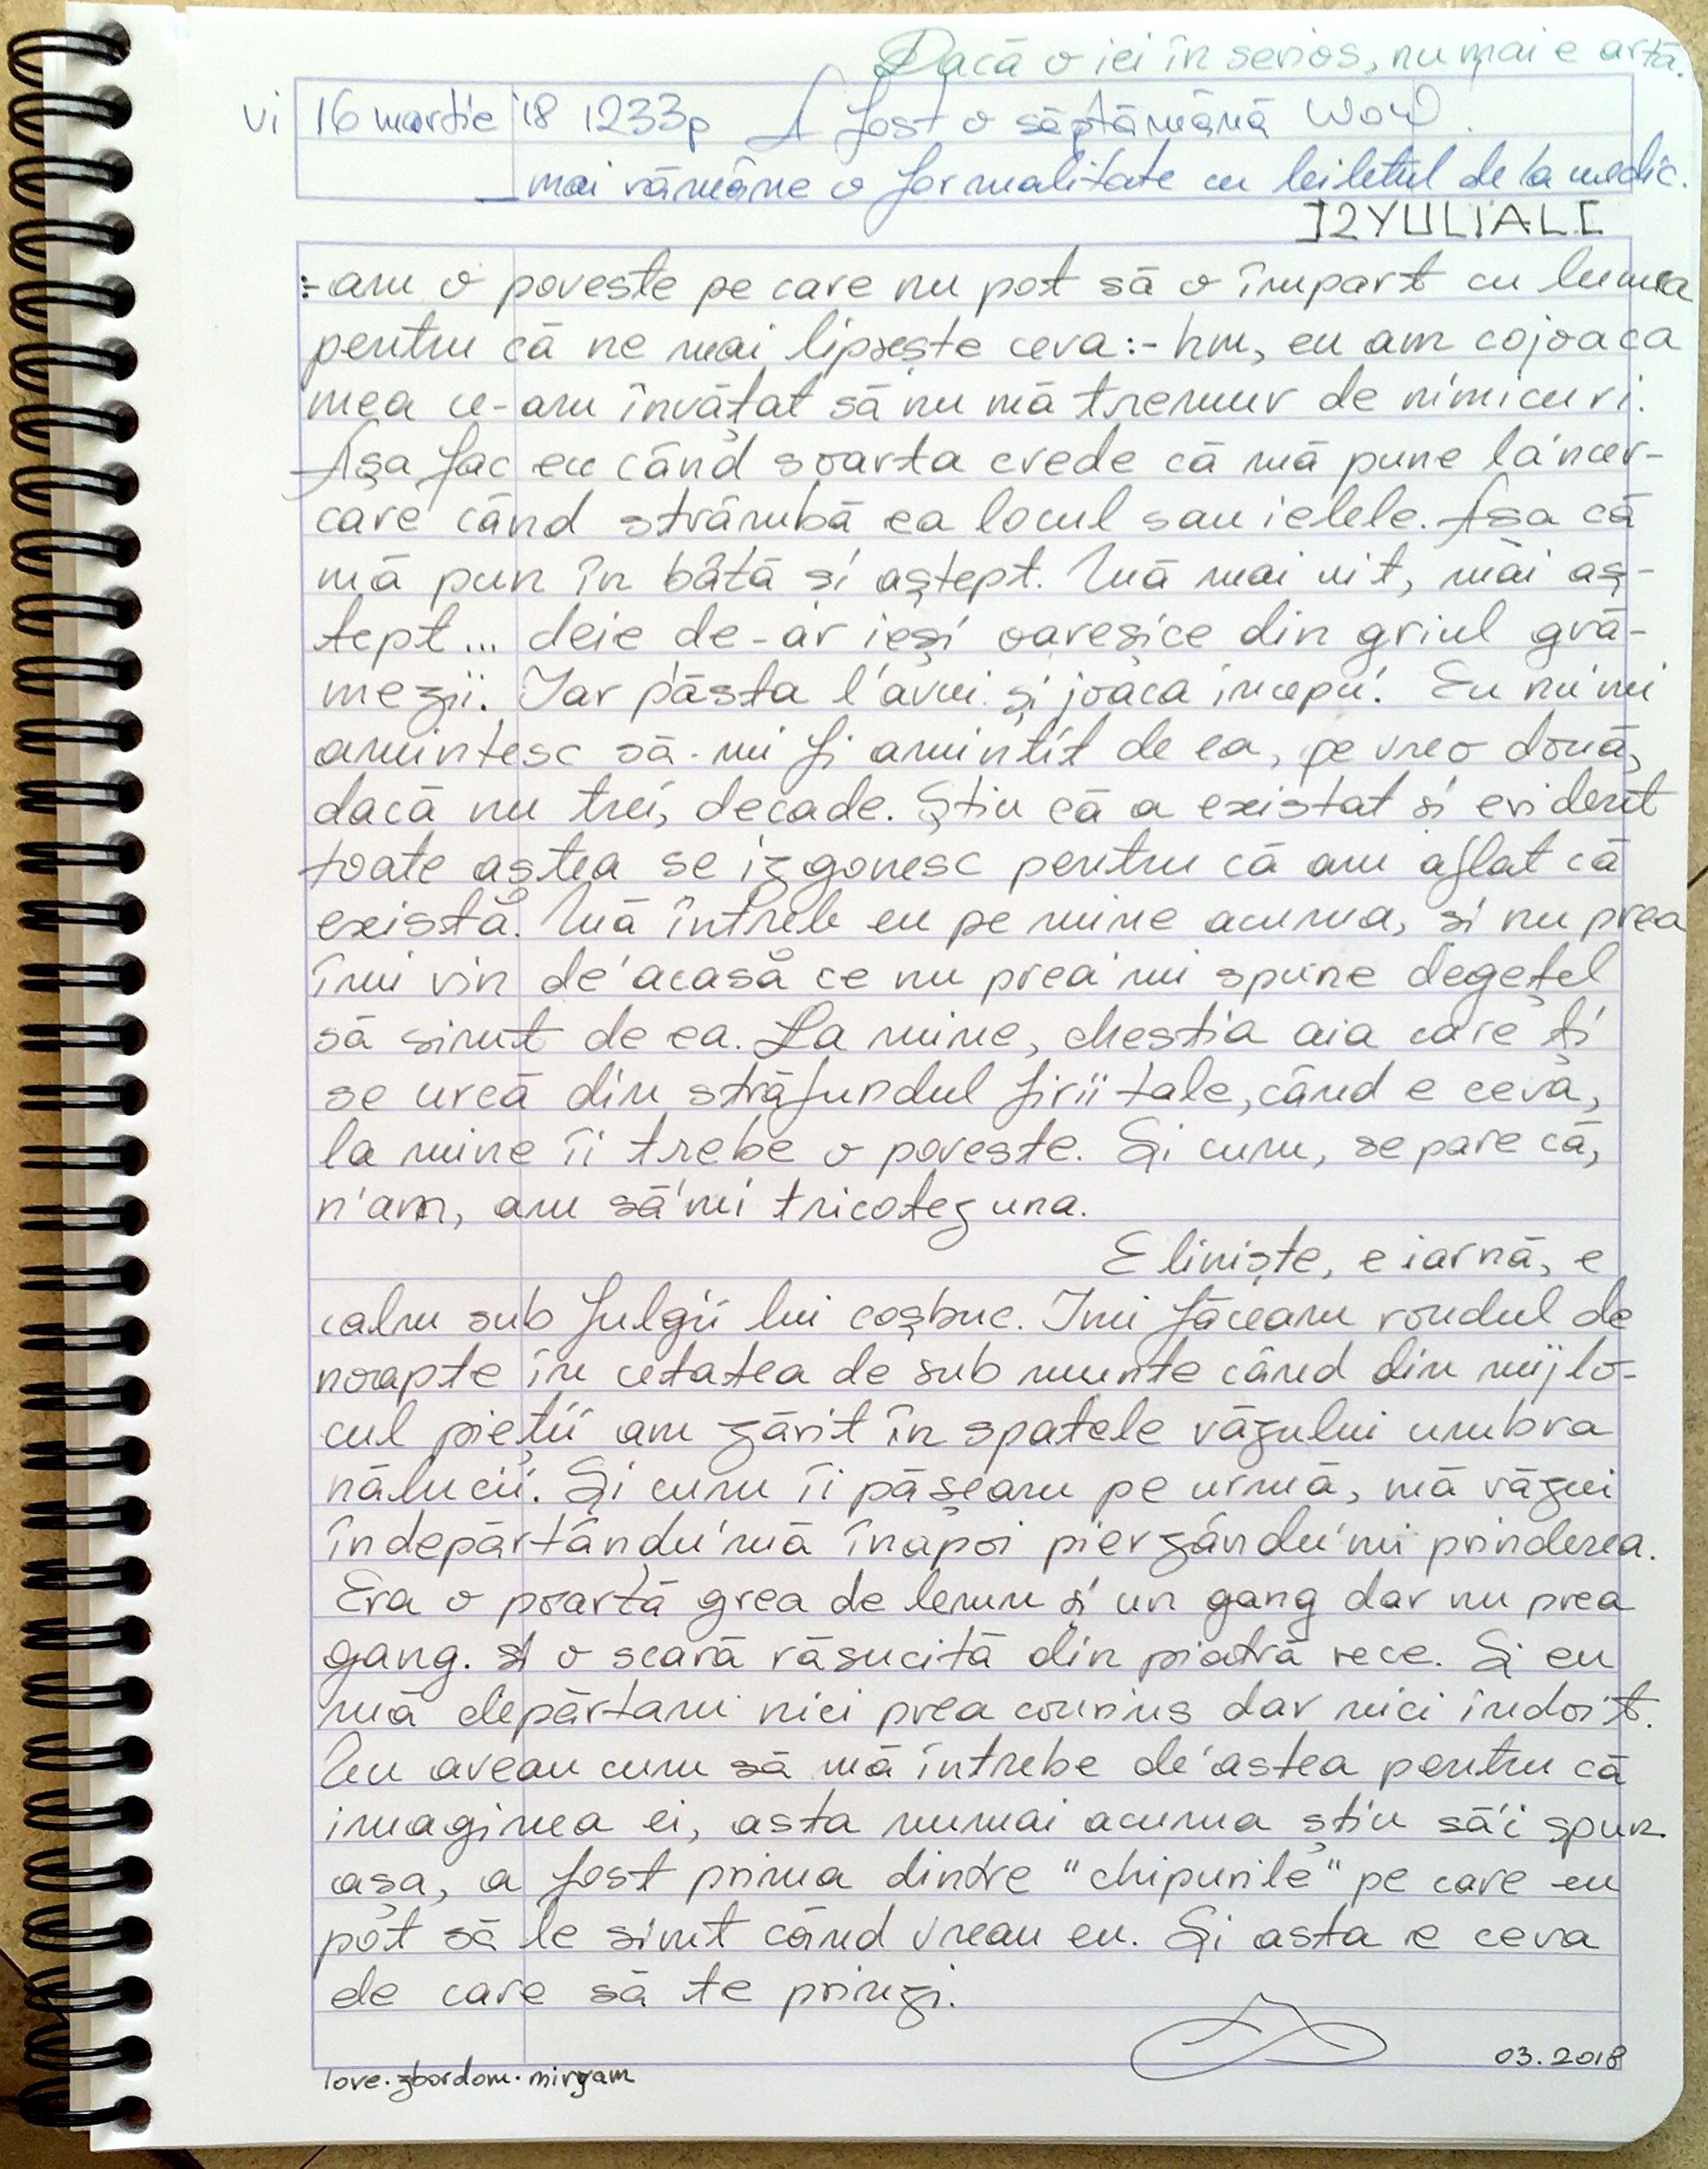 Dacă o iei în serios, nu mai e artă.
vi 16 martie '18 1233p A fost o săptămână WOW.
mai rămâne o formalitate cu biletul de la medic.
]2YULIAL[
:- am o poveste pe care nu pot să o împart cu lumea
pentru că ne mai lipsește ceva :- hm, eu am cojoaca
mea ce-am învățat să nu mă tremur de nimicuri.
Așa fac eu când soarta crede că mă pune la'ncer-
care când strâmbă ea locul sau ielele. Așa că
mă pun în bâtă și aștept. Mă mai uit, mai aș-
tept... deie de-ar ieși oareșice din griul gră-
mezii. Iar p'ăsta l'avui și joaca începu'. Eu nu'mi
amintesc să-mi fi amintit de ea, pe vreo două,
dacă nu trei, decade. Știu că a existat și evident
toate aștea se izgonesc pentru că am aflat că
există. Mă întreb eu pe mine acuma, și nu prea
îmi vin de'acasă ce nu prea'mi spune degețel
să simt de ea. La mine, chestia aia care ți
se urcă din străfundul firii tale, când e ceva,
la mine îi trebe o poveste. Și cum, se pare că,
n'am, am să'mi tricotez una.
E liniște, e iarnă, e
calm sub fulgii lui coșbuc. Imi făceam rondul de
noapte în cetatea de sub munte când din mijlo-
cul pieții am zărit în spatele văzului umbra
nălucii. Și cum îi pășeam pe urmă, mă văzui
îndepărtându'mă înapoi pierzându'mi prinderea.
Era o poartă grea de lemn și un gang dar nu prea
gang. și o scară răsucită din piatră rece. Și eu
mă depărtam nici prea convins dar nici îndoit.
Nu aveau cum să mă întrebe de'astea pentru că
imaginea ei, asta numai acuma știu să'i spun
așa, a fost prima dintre "chipurile" pe care eu
pot să le simt când vreau eu. Și asta e ceva
de care să te prinzi.
03.2018
love.zbordom.miryam